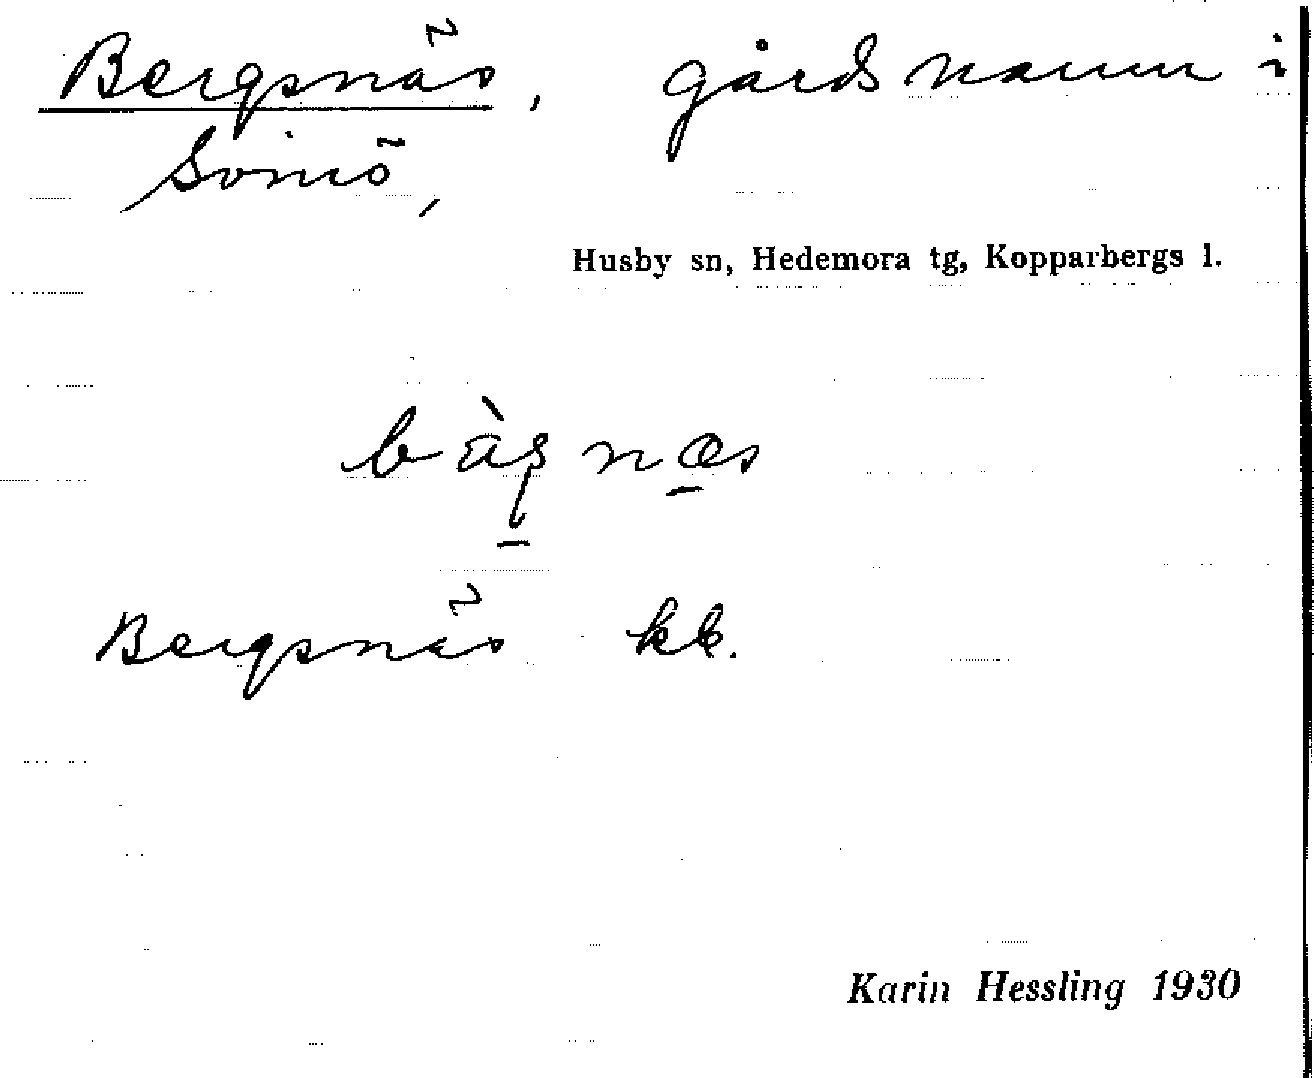 Bergsnäs, gårdsnamn i
Svinö,
Husby sn, Hedemora tg, Kopparbergs l.
Bergsnäs kb.
Karin Hessling 1930